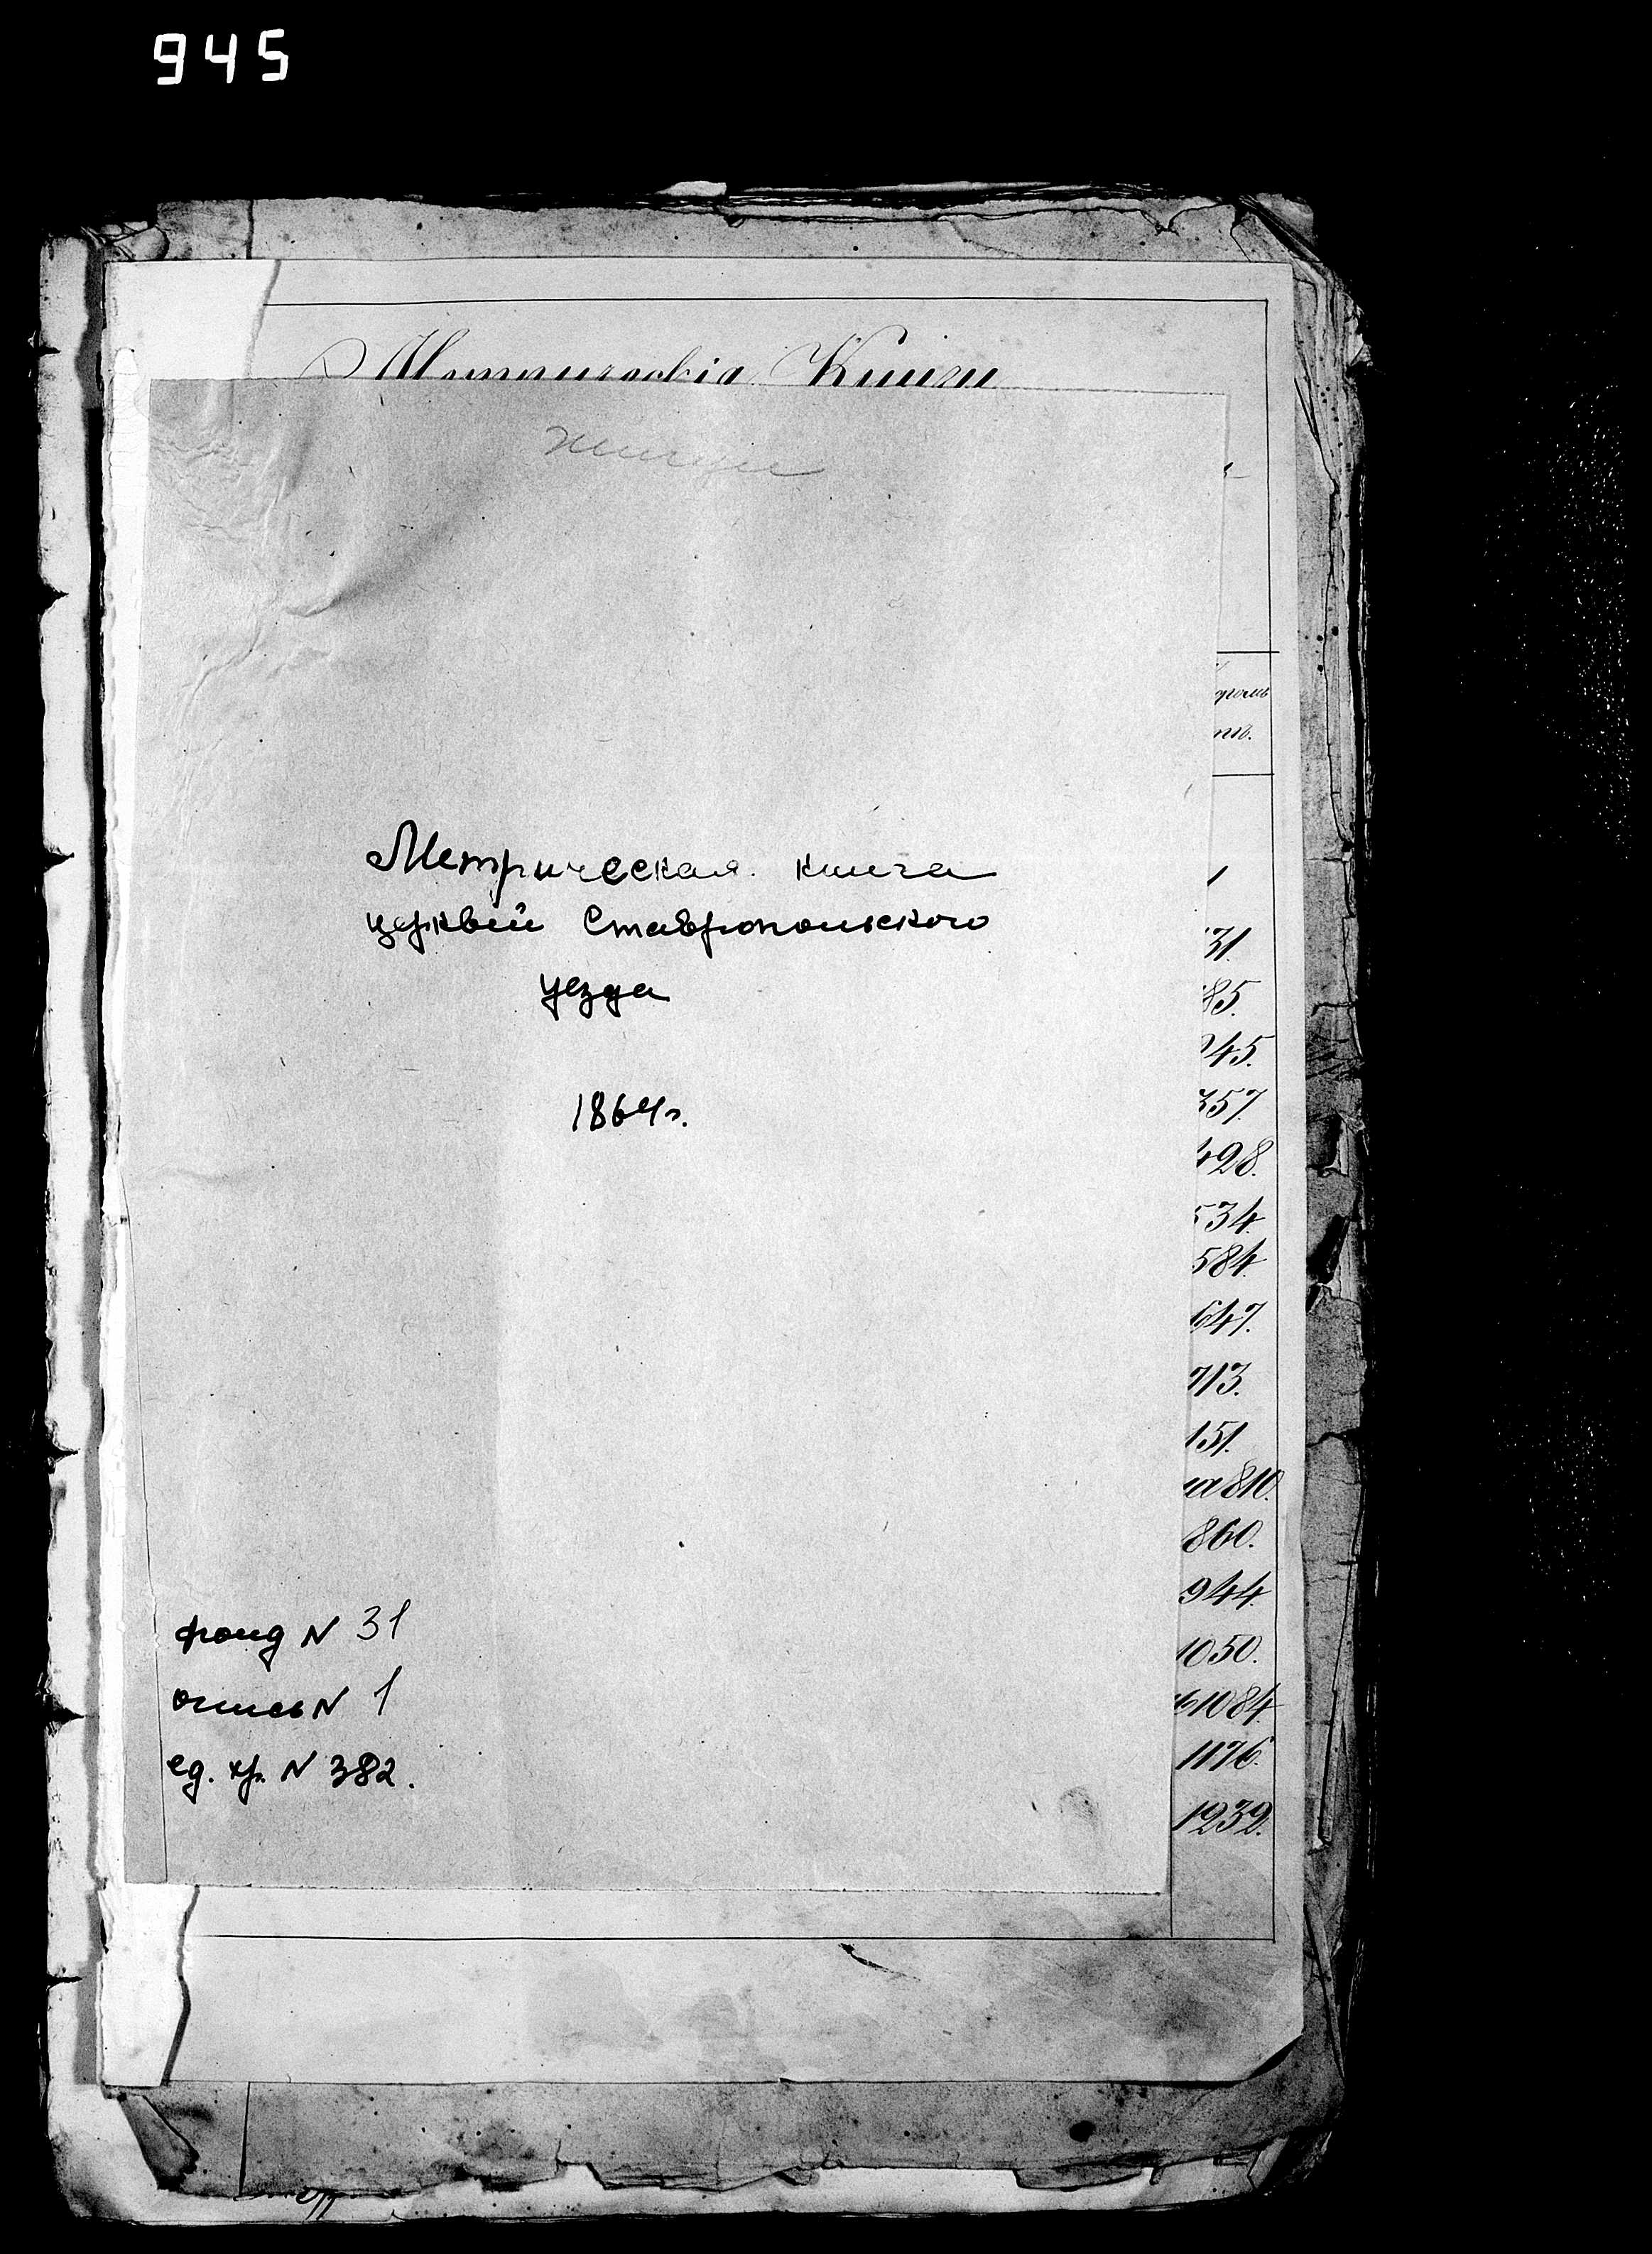 945
Метрическія Книги
Метрическая книга
церквей Ставропольского
уезда
1864г.
31.
85.
45.
357
498.
534.
584.
647.
713.
151.
на 810.
860.
944.
1050.
1084.
1176.
1239.
фонд N 31
опись N 1
ед. хр. N 382.